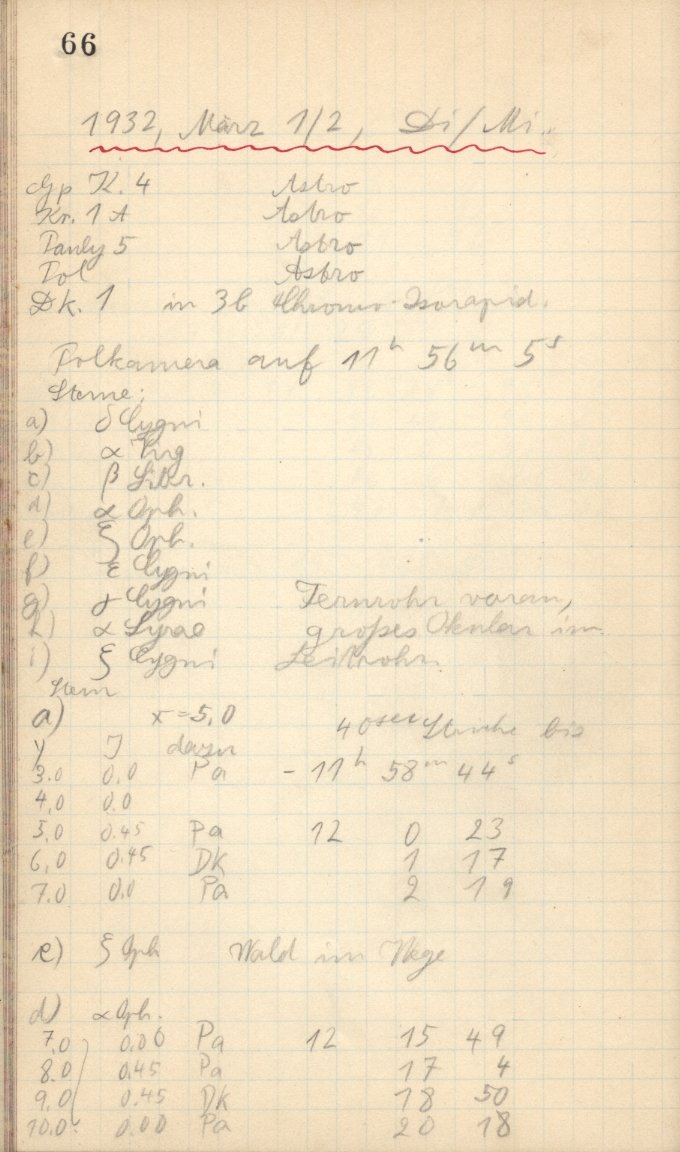 66
1932, März 1/2, Di/Mi.
Gp K. 4 Astro
Kr. 1 A Astro
Pauly 5 Astro
Pol Astro
Dk. 1 in 3b Chromo-Isorapid.
Polkamera auf 11h 56m 5s
Sterne:
a) δ Cygni
b) α Virg
c) β Libr.
d) α Oph.
e) ξ Oph.
f) ε Cygni
g) γ Cygni Fernrohr voran,
h) α Lyrae großes Okular im
i) ξ Cygni Leitrohr.
Stern
a) x=5,0 40sec Striche bis
y J dazu
3.0 0.0 Pa - 11h 58m 44s
4,0 0.0
5,0 0.45 Pa 12 0 23
6,0 0.45 Dk 1 17
7.0 0.0 Pa 2 19
e) ξ Oph Wald im Wege
d) α Oph.
7,0 0.00 Pa 12 15 49
8.0 0.45 Pa 17 4
9.0 0.45 Dk 18 50
10.0 0.00 Pa 20 18